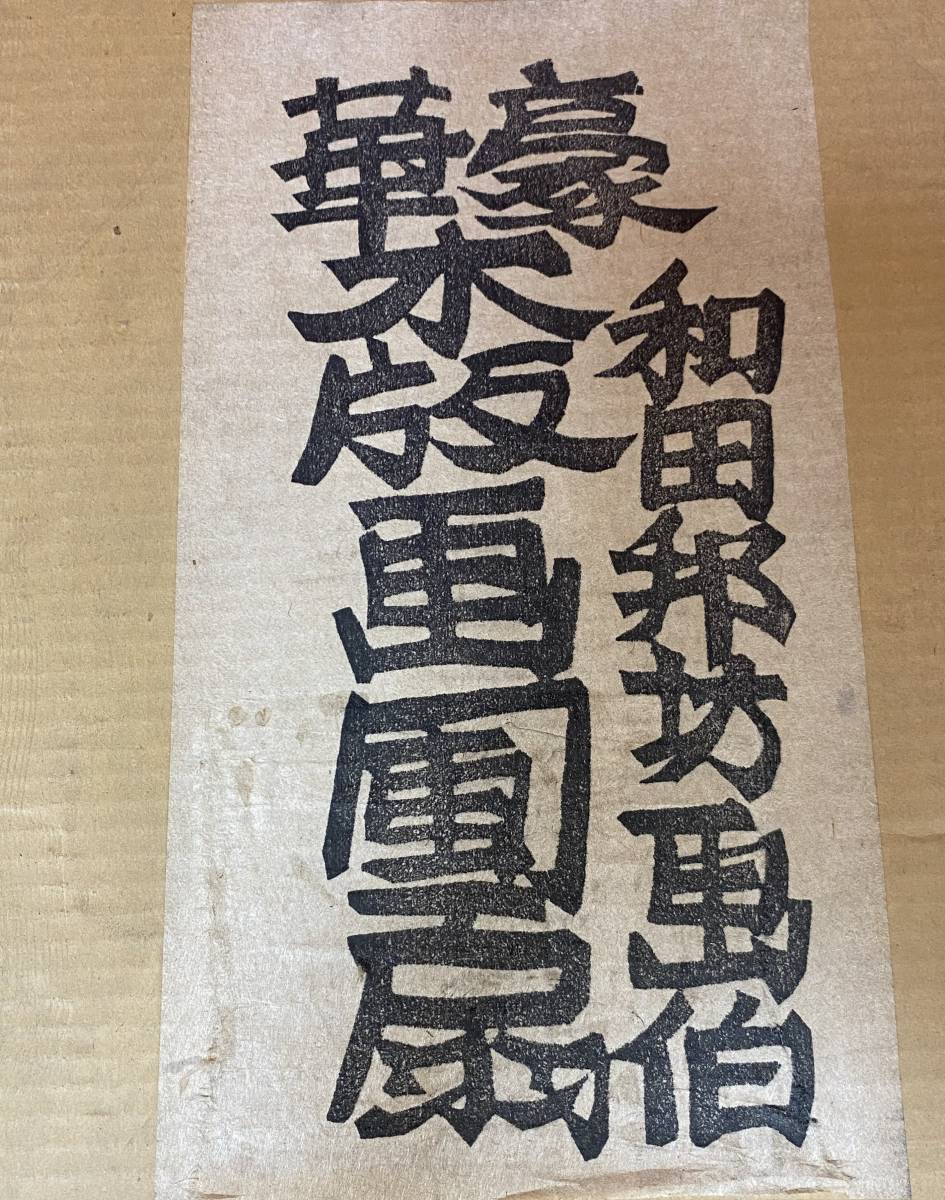 和田邦坊画伯
豪華
木版画團扇